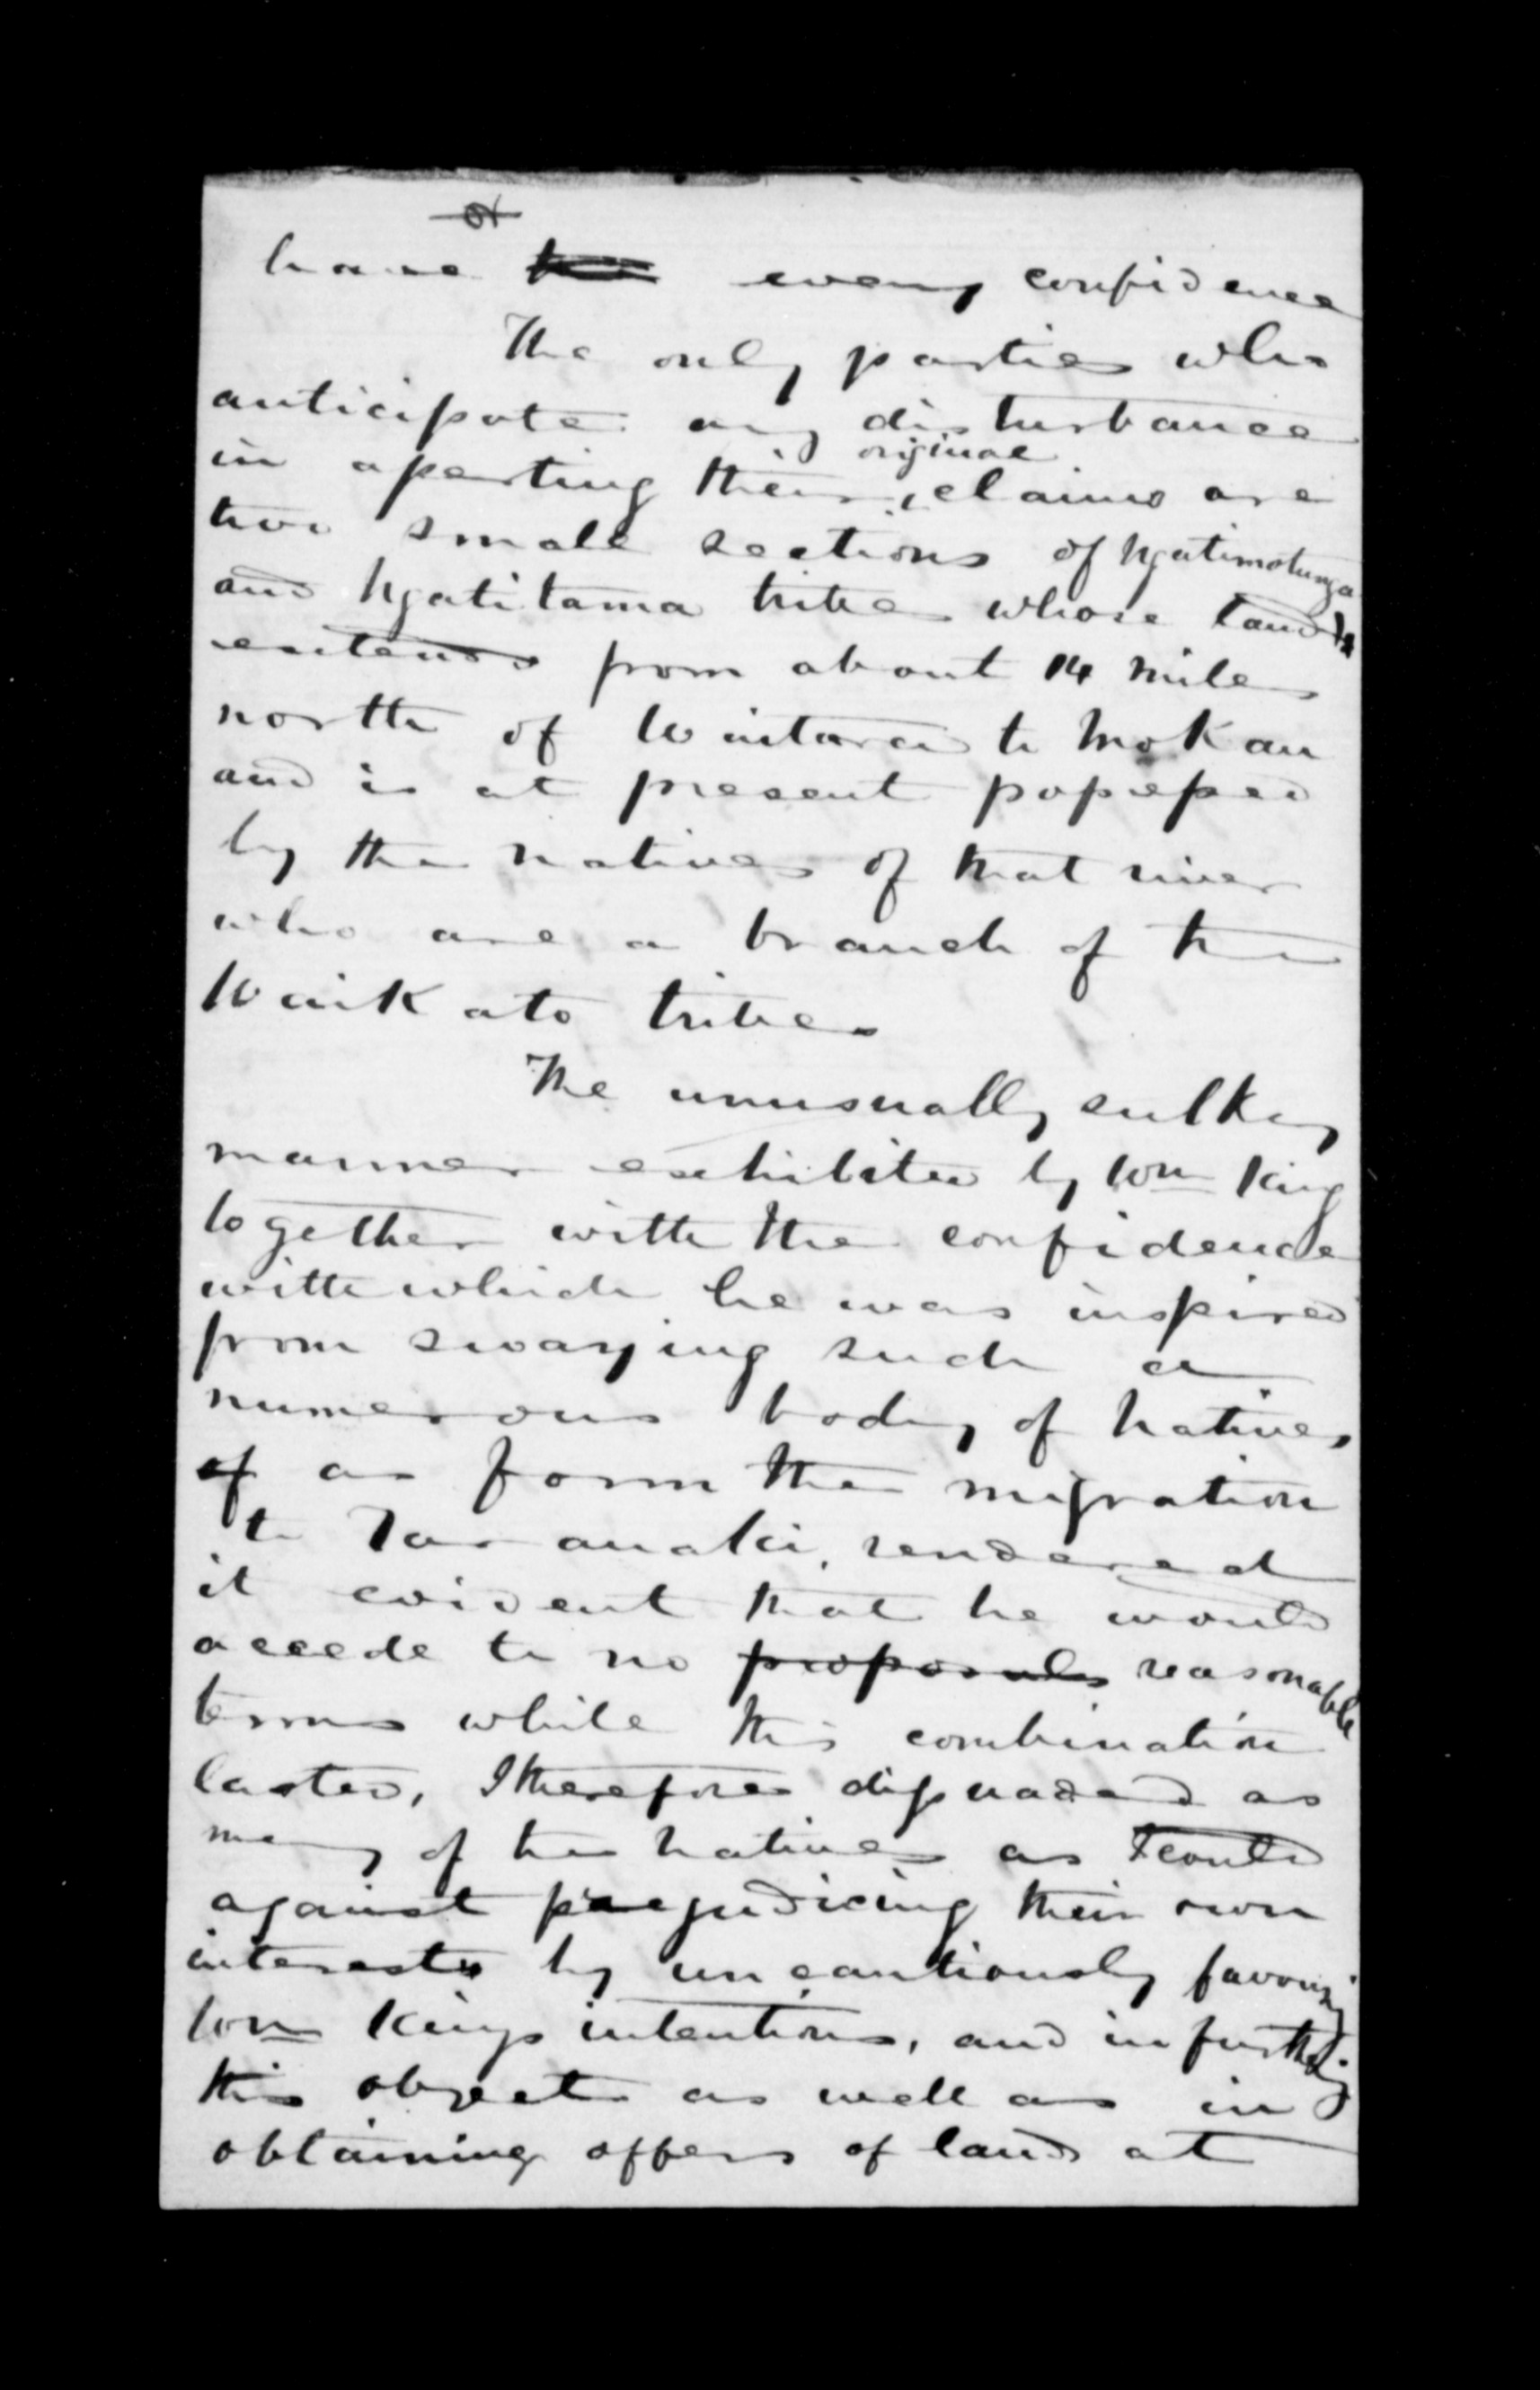 have every confidence
The only parties who
anticipate any disturbance
in asserting their original claims are
two small sections of Ngatimotunga
and Ngatitama tribes whose lands
extends from about 14 miles
north of Waitara to Mokau
and is at present possessed
by the natives of that river
who are a branch of the
Waikato tribes
The unusually sulky
manner exhibited by Wm King
together with the confidence
with which he was inspired
from swaying such a
numerous body of Natives
of as form the migration
to Taranaki, rendered
it evident that he would
accede to no proposals reasonable
terms while this combination
lasted, I therefore dissuaded as
many of the Natives as I could
against prejudicing their own
interests by uncautiously favouring
Wm Kings intentions, and in furthering
this object as well as in
obtaining offers of land at